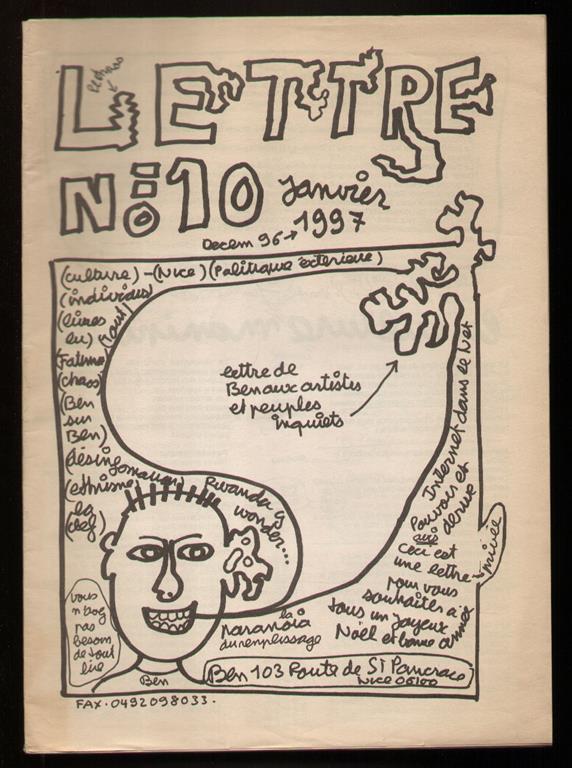 LETTRE
le chaos
N:10 Janvier
Decem 96→ 1997
(culture)-(Nice)(Politique exterieure)
(individus)
(livres
lu) (tout)
(Fatema)
(chaos)
(Ben
sur
Ben)
(désinformation)
(ethnisme)
la
(clef)
lettre de
Ben aux artistes
et peuples
inquiets
Rwanda is
wonder...
Internet dans le Net
Pouvoir et
derive
aussi
Ceci est
une lettre
privée
pour vous
souhaiter à
tous un Joyeux
Noël et bonne année
la
paranoïa
du remplissage
vous
pas
besoin
de tout
lire
Ben
Ben 103 Route de St Pancrace
Nice 06100
FAX.0492098033.